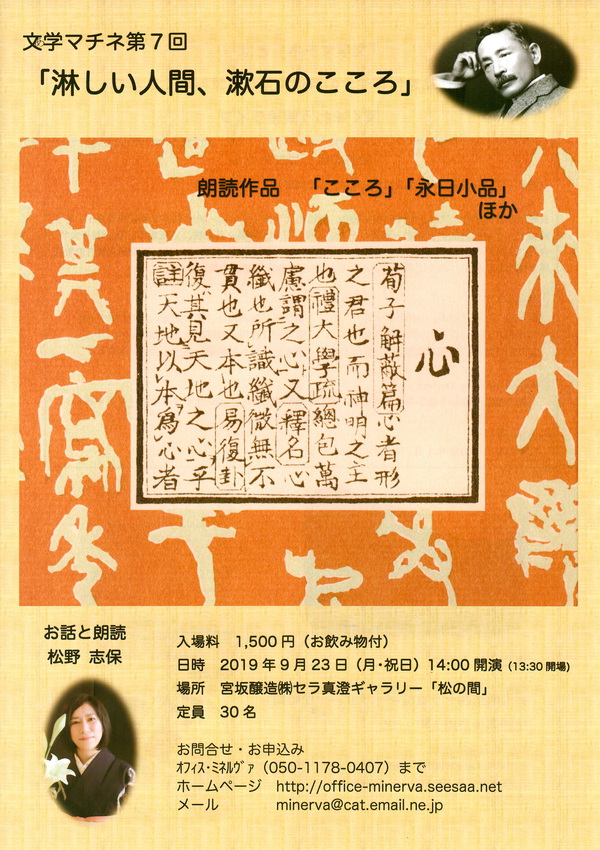 文学マチネ第7回
「淋しい人間、漱石のこころ」
朗読作品　「こころ」「永日小品」
ほか
心
荀子解蔽篇心者形
之君也而神明之主
也禮大學疏總包萬
慮謂之心又釋名心
纖也所識纖微無不
貫也又本也易復卦
復其見天地之心乎
註天地以本爲心者
お話と朗読
松野 志保
入場料　1,500円（お飲み物付）
日時　2019年9月23日（月・祝日）14:00開演（13:30開場）
場所　宮坂醸造㈱セラ真澄ギャラリー「松の間」
定員　30名
お問合せ・お申込み
ｵﾌｨｽ･ﾐﾈﾙｳﾞｧ（050-1178-0407）まで
ホームページ　http://office-minerva.seesaa.net
メール　minerva@cat.email.ne.jp